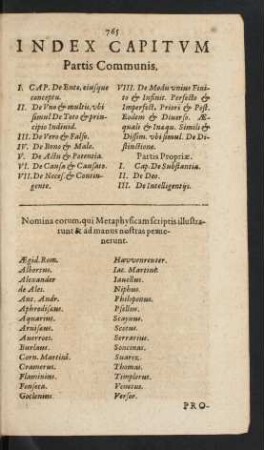 765
INDEX CAPITVM
Partis Communis.
I. CAP. De Ente, eiusque
conceptu.
II. De Vno & multis. vbi
simul De Toto & prin-
cipio Indiuid.
III. De Vero & Falso.
IV. De Bono & Malo.
V. De Actu & Potentia.
VI. De Causa & Causato.
VII. De Necess. & Contin-
gente.
VIII. De Modo vnius Fini-
to & Infinit. Perfecto &
Imperfect. Priori & Post.
Eodem & Diuerso. Æ-
quali & Inæqu. Simili &
Dissim. vbi simul De Di-
stinctione.
Partis Propriæ.
I. Cap. De Substantia.
II. De Deo.
III. De Intelligentijs.
Nomina eorum, qui Metaphysicam scriptis illustra-
runt & ad manus nostras perue-
nerunt.
Ægid. Rom.
Albertus.
Alexander
de Ales.
Ant. Andr.
Aphrodisæus.
Aquarius.
Arnisæus.
Auerroes.
Burlæus.
Corn. Martinū.
Cramerus.
Flaminius.
Fonseca.
Goclenius.
Hawenreuter.
Iac. Martinū.
Iauellus.
Niphus.
Philoponus.
Psellus.
Scaynus.
Scotus.
Serrarius.
Soncinas.
Suarez.
Thomas.
Timplerus.
Venetus.
Versor.
PRO-